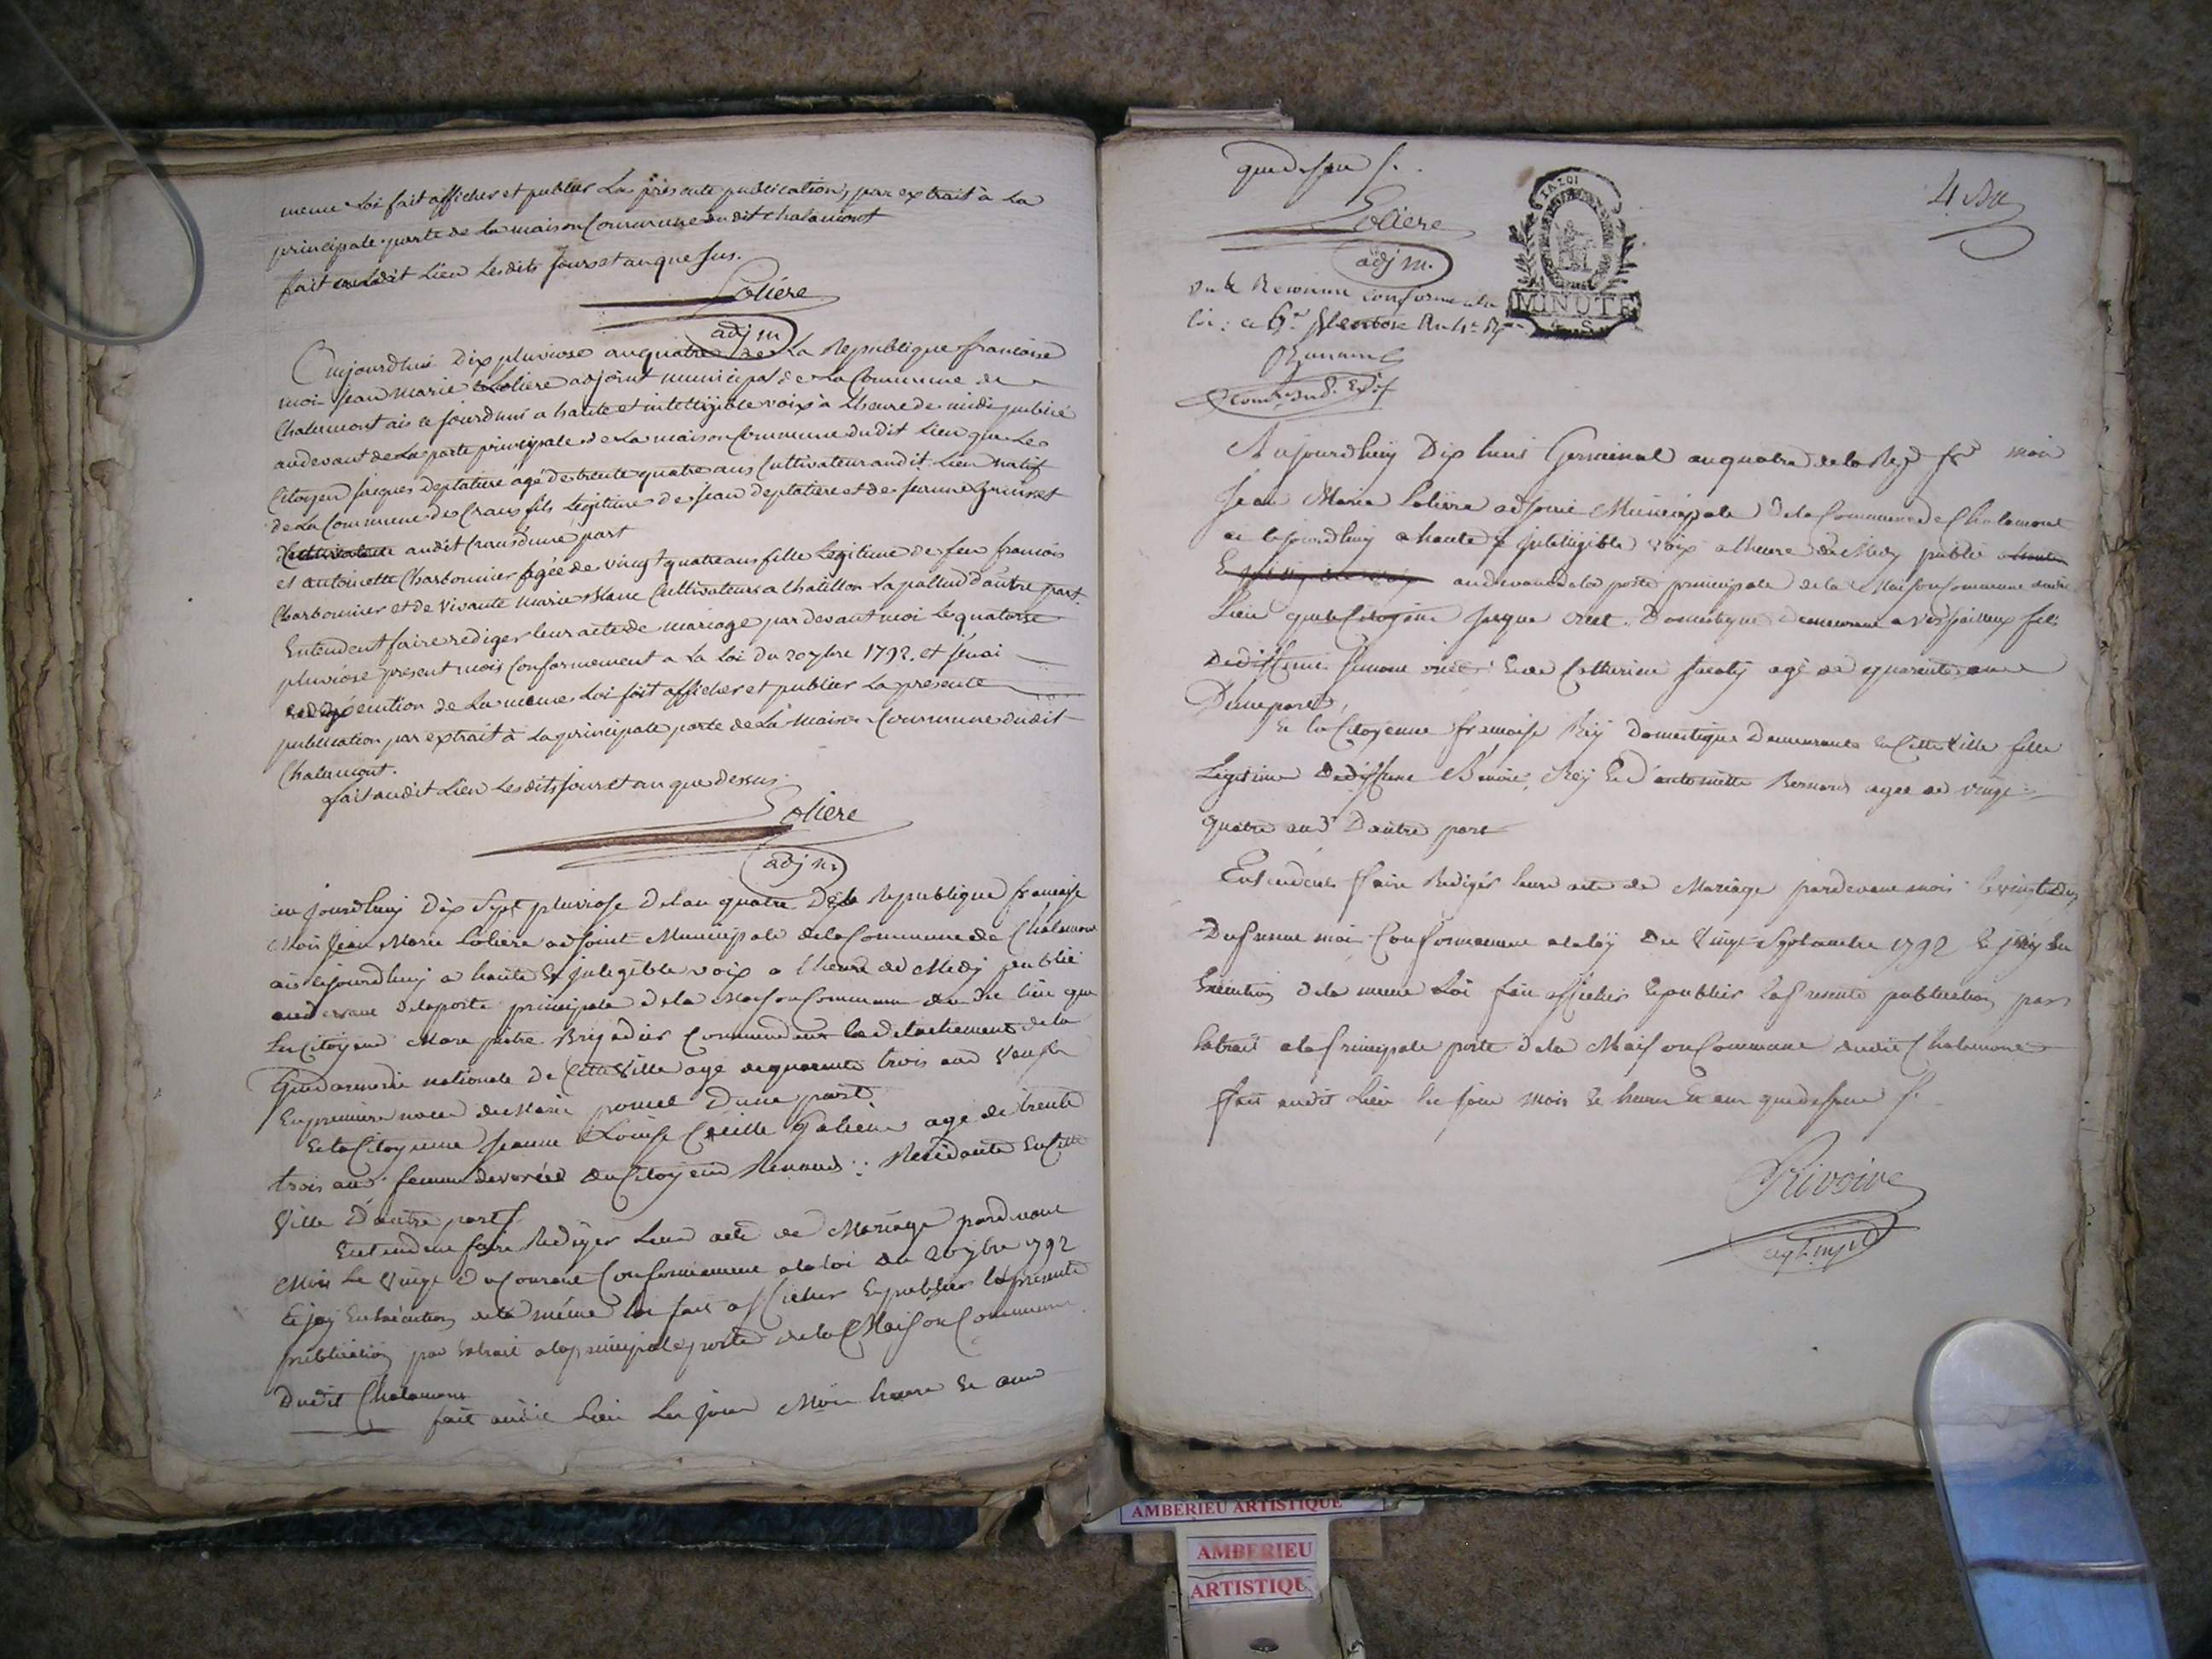 meme Loi fait afficher et publier La presente publication, par extrait à La
principale porte de La maison Commune du dit chalamont
fait audit Lieu Lesdits Jours et an que sus.
Lolière
adj m
Aujourdhui Dix pluviose an quatre de La Republique francoise
moi Jean Marie Loliere adjoint municipal de La Commune de
Chalamont ais ce Jourdhui a haute et intelligible voix à Lheure de midi publié
audevant de La porte principale de La maison Commune dudit Lieu que Le
Citoyen Jacques Deplatiere agé de trente quatre ans Cultivateur audit Lieu natif
de La Commune de Crans fils Légitime de Jean Deplatiere et de
audit Crans d'une part
et Antoinette Charbonnier agée de vingt quatre ans fille Legitime de feu francois
Charbonnier et de vivante Marie Blanc Cultivateurs a Chatillon La pallud d'autre part.
Entendent faire rediger leur acte de mariage par devant moi Le quatorse
pluviose present mois Conformement a La Loi du 20 7bre 1792. et J'en ai
execution de La meme Loi fait afficher et publier La presente
publication par extrait à La principale porte de La maison Commune dudit
Chalamont.
fait audit Lieu Lesdits Jours et an que dessus.
Lolière
adj m
aujourdhuy Dix Sept pluviose De lan quatre De la Republique francaise
Moi Jean Marie Loliere adjoint Municipale dela Commune de Chalamont
ais cejourdhuy a haute Et Jntelegible voix a l heure de Midy publié
audevant dela porte principale dela Maison Commune du dit lieu que
Le Citoyend Marc pietre Brigadier Commendant le detachement dela
Gendarmerie nationale de Cette Ville agé de quarante trois ans Veuf
En premiere noce de Marie D'une part.
Et la Citoyenne Jeanne Louise agé de trente
trois ans femme devorcée du Citoyend Renaud Residante En Cette
Ville D'autre part
Entendent faire Rediger Leur acte de Mariage pardevant
Moi Le Vingt Du Courant Conformement a la loi du 20 7bre 1792
Et jay En Execution de la même loi fait afficher Et publier la presente
publication par Extrait a la principale porte de la Maison Commune
Dudit Chalamont
fait audit Lieu Les Jour Mois heure Et an
que dessus
Loliere
adj m.
Vu & Reconnu conforme a la
loi. ce 6.e Ventose An 4.e
LA LOI
MINUTE
4. S.
Aujourdhuy Dix huit Germinal an quatre de la moi
Jean Marie Loliere adjoint Municipale De la Commune de Chalamont
ai cejourdhuy a haute & Jntelligible Voix a lheure de Midy publié
audevant de la porte principale de la Maison Commune dudit
Lieu que le Citoyen Jacque Domestique Demeurant a Versailleux fils
De deffunt Simone Et de Catherine agé de quarante
D'une part,
Et la Citoyenne francoise Rey Domestique Demeurante En Cette Ville fille
Legitime De deffunt Benoit Rey Et d'antoinette Bernard agée de vingt
quatre ans D'autre part
Entendent faire Rediger leurs acte de Mariage pardevant moi le
Du present moi Conformement a la loy Du Vingt Septembre 1792 Et j'ay En
Execution de la meme Loi fait afficher Et publier la presente publication par
Extrait a la principale porte De la Maison Commune dudit Chalamont
fait audit Lieu les jour mois Et heure Et an que dessus
Rivoire
AMBERIEU ARTISTIQUE
AMBERIEU
ARTISTIQUE